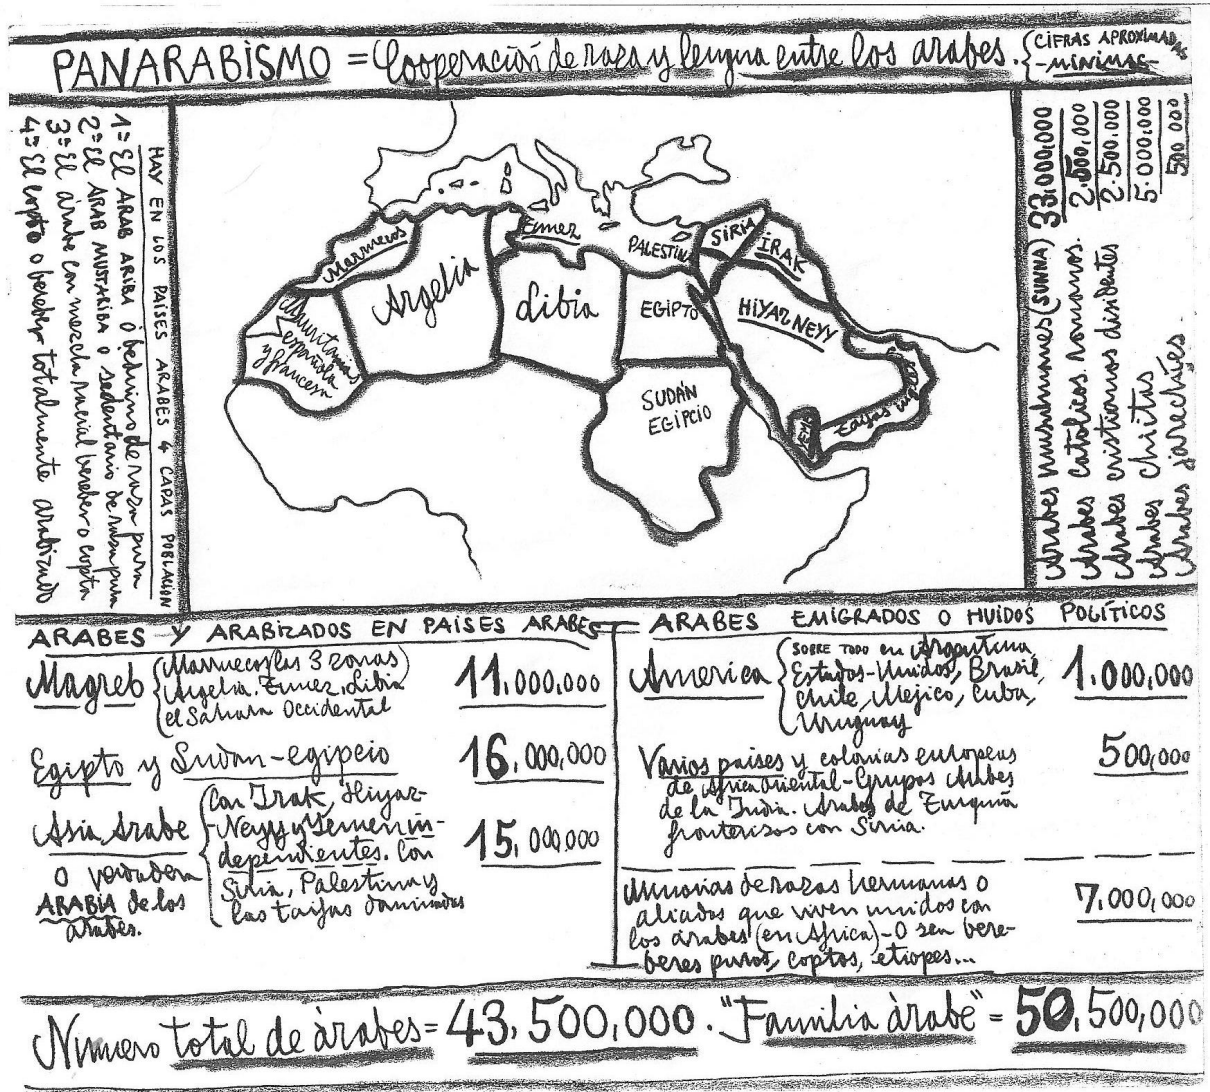 PANARABISMO = Cooperación de raza y lengua entre los arabes.
CIFRAS APROXIMADAS
-MINIMAS-
HAY EN LOS PAÍSES ARABES 4 CAPAS POBLACION
1= El ARAB ARIBA ó beduino de raza pura
2= El ARAB MUSTARIBA o sedentario de raza pura
3= El árabe con mezcla racial bereber o copta
4= El copto o bereber totalmente arabizado
Marruecos
Mauritanias
española
y francesa
Argelia
Tunez
Libia
PALESTINA
EGIPTO
SUDÁN
EGIPCIO
SIRIA
IRAK
HIYAZ NEYY
YEMEN
Taifas inglesas
Arabes musulmanes (SUNNA) 33.000.000
Arabes católicos romanos. 2.500.000
Arabes cristianos disidentes 2.500.000
Arabes chiitas 5.000.000
Arabes jarechíes. 500.000
ARABES Y ARABIZADOS EN PAÍSES ARABES
Magreb
Marruecos (las 3 zonas)
Argelia. Tunez, Libia
el Sáhara Occidental
11.000,000
Egipto y Sudan-egipcio
16.000,000
Asia Arabe
o verdadera
ARABIA de los
árabes.
Con Irak, Hiyaz-
Neyy y Yemen in-
dependientes. Con
Siria, Palestina y
las taifas dominadas
15,000,000
ARABES EMIGRADOS O HUIDOS POLÍTICOS
America
SOBRE TODO en Argentina,
Estados-Unidos, Brasil,
Chile, Méjico, Cuba,
Uruguay
1.000,000
Varios paises y colonias europeas
de Africa oriental-Grupos Arabes
de la India. Arabes de Turquía
fronterizos con Siria.
500,000
Minorias de razas hermanas o
aliadas que viven unidos con
los árabes (en Africa)-O sea bere-
beres puros, coptos, etiopes...
7.000,000
Numero total de àrabes= 43,500,000. "Familia àrabe" = 50,500,000